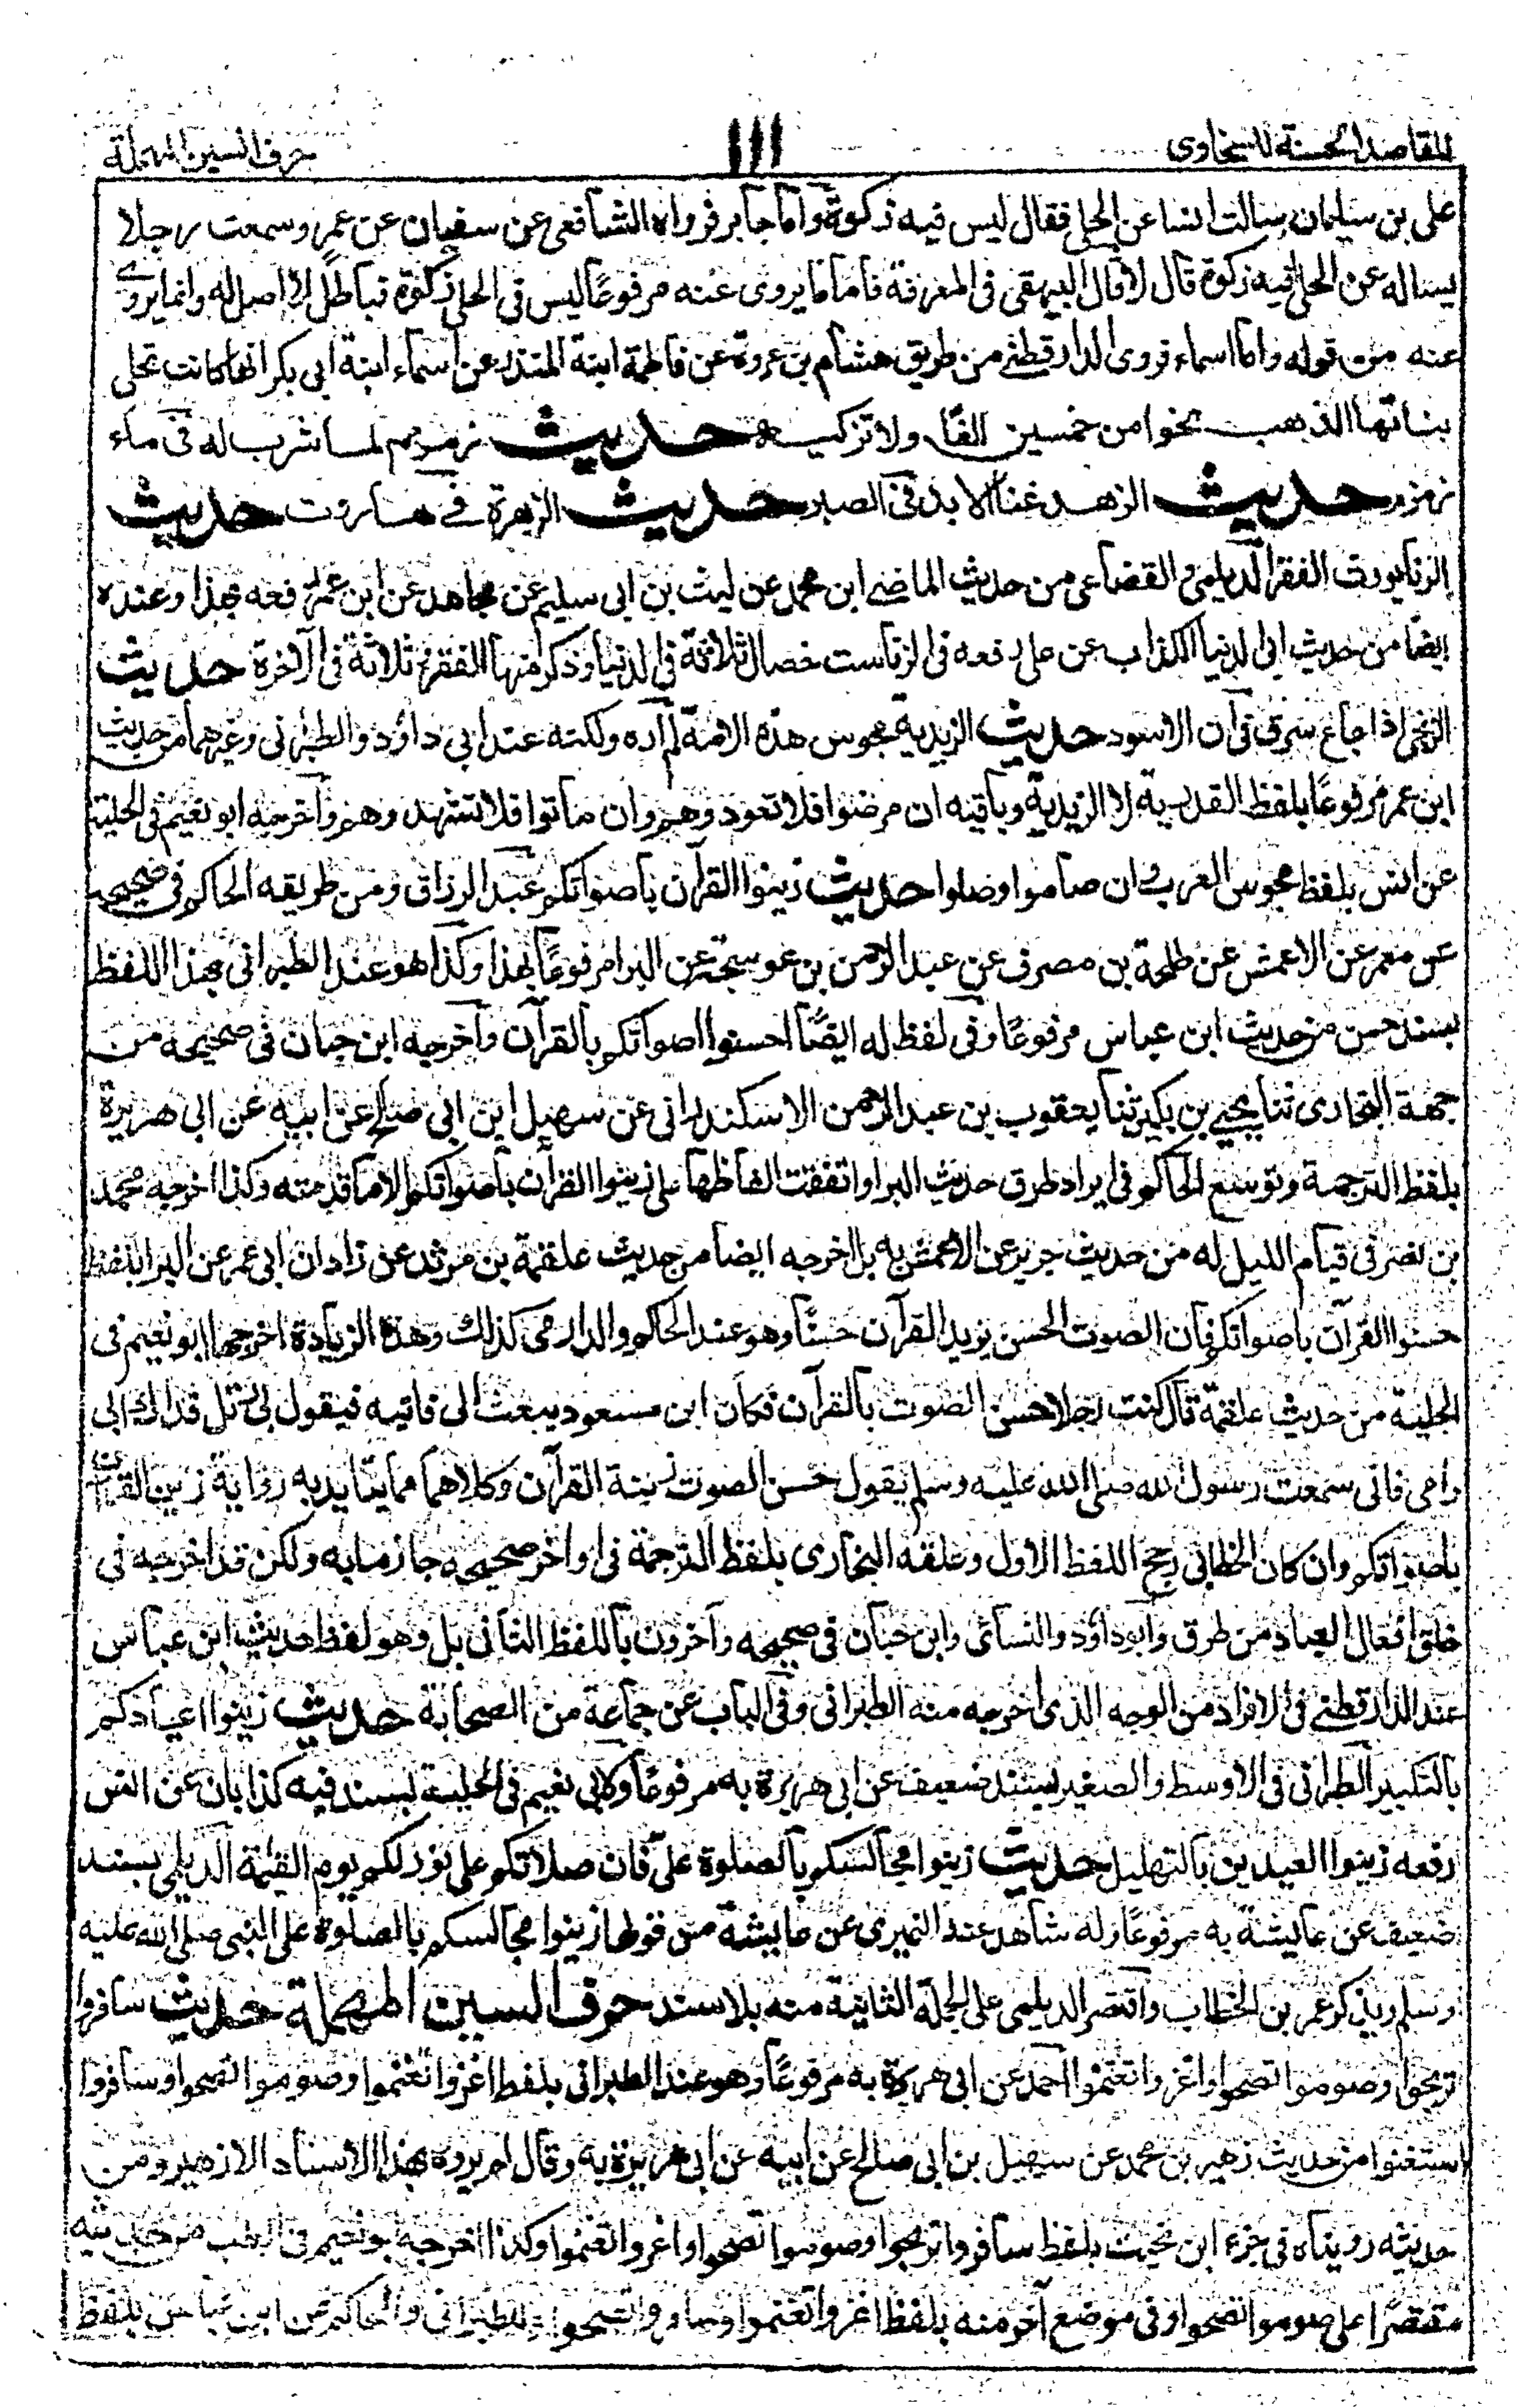 المقاصد الحسنة للسخاوى
١١١
حرف السين المهملة
على بن سليمان سالت انسا عن الحلى فقال ليس فيه زكوة واما جابر فرواه الشافعى عن سفيان عن عمرو سمعت رجلا
يساله عن الحلى افيه زكوة قال لا قال البيهقى فى المعرفة فاما ما يروى عنه مرفوعًا ليس فى الحلى زكوة فباطل لا اصل له وانما يروى
عنه من قوله واما اسماء فروى الدارقطنى من طريق هشام بن عروة عن فاطمة ابنة المنذر عن اسماء ابنة ابى بكر انها كانت تحلى
بناتها الذهب نحوا من خمسين الفًا ولا تزكيه حديث زمزم لما شرب له فى ماء
زمزم حديث الزهد غنا الابد فى الصبر حديث الزهرة فى هاروت حديث
الزنا يورث الفقر الديلمى والقضاعى من حديث الماضى ابن محمد عن ليث بن ابى سليم عن مجاهد عن ابن عمر رفعه بهذا وعنده
ايضًا من حديث ابى الدنيا الكذاب عن على رفعه فى الزنا ست خصال ثلاثة فى الدنيا وذكر منها الفقر و ثلاثة فى الآخرة حديث
الزنجى اذا جاع سرق فى ان الاسود حديث الزيدية مجوس هذه الامة لم اره ولكنه عند ابى داؤد والطبرانى وغيرهما من حديث
ابن عمر مرفوعًا بلفظ القدرية لا الزيدية وباقيه ان مرضوا فلا تعودوهم وان ماتوا فلا تشهدوهم واخرجه ابو نعيم فى الحلية
عن انس بلفظ مجوس العرب وان صاموا وصلوا حديث زينوا القرآن باصواتكم عبد الرزاق ومن طريقه الحاكم فى صحيحه
عن معمر عن الاعمش عن طلحة بن مصرف عن عبد الرحمن بن عوسجة عن البرا مرفوعًا بهذا وكذا هو عند الطبرانى بهذا اللفظ
بسند حسن من حديث ابن عباس مرفوعًا وفى لفظ له ايضًا احسنوا اصواتكم بالقرآن واخرجه ابن حبان فى صحيحه من
جهة البخارى ثنا يحيى بن بكير ثنا يعقوب بن عبد الرحمن الاسكندرانى عن سهيل ابن ابى صالح عن ابيه عن ابى هريرة
بلفظ الترجمة وتوسع الحاكم فى ايراد طرق حديث البرا واتفقت الفاظها على زينوا القرآن باصواتكم الا ما قدمته وكذا اخرجه محمد
بن نصر فى قيام الليل له من حديث جرير عن الاعمش به بل اخرجه ايضا من حديث علقمة بن مرثد عن زاذان ابى عمر عن البرا بلفظ
حسنوا القرآن باصواتكم فان الصوت الحسن يزيد القرآن حسنًا وهو عند الحاكم والدارمى كذلك وهذه الزيادة اخرجها ابو نعيم فى
الحلية من حديث علقمة قال كنت رجلا حسن الصوت بالقرآن فكان ابن مسعود يبعث الى فاتيه فيقول لى رتل فداك ابى
وامى فانى سمعت رسول الله صلى الله عليه وسلم يقول حسن الصوت زينة القرآن وكلاهما مما يتايد به رواية زين القرآن
باصواتكم وان كان الخطابى رجح اللفظ الاول وعلقه البخارى بلفظ الترجمة فى اواخر صحيحه جازما به ولكن قد اخرجه فى
خلق افعال العباد من طرق وابو داؤد والنسائى وابن حبان فى صحيحه وآخرون باللفظ الثانى بل وهو لفظ حديث ابن عباس
عند الدارقطنى فى الافراد من الوجه الذى اخرجه منه الطبرانى وفى الباب عن جماعة من الصحابة حديث زينوا اعيادكم
بالتكبير الطبرانى فى الاوسط والصغير بسند ضعيف عن ابى هريرة به مرفوعًا ولابى نعيم فى الحلية بسند فيه كذابان عن انس
رفعه زينوا العيدين بالتهليل حديث زينوا مجالسكم بالصلوة على فان صلاتكم على نور لكم يوم القيمة الديلمى بسند
ضعيف عن عايشة به مرفوعًا وله شاهد عند النميرى عن عايشة من قولها زينوا مجالسكم بالصلوة على النبى صلى الله عليه
وسلم وبذكر عمر بن الخطاب واقتصر الديلمى على الجملة الثانية منه بلا سند حرف السين المهملة حديث سافروا
تربحوا وصوموا تصحوا واغزوا تغنموا احمد عن ابى هريرة به مرفوعًا وهو عند الطبرانى بلفظ اغزوا تغنموا وصوموا تصحوا وسافروا
تستغنوا من حديث زهير بن محمد عن سهيل بن ابى صالح عن ابيه عن ابى هريرة به وقال لم يروه بهذا الاسناد الا زهير ومن
حديثه رويناه فى جزء ابن نخيت بلفظ سافروا تربحوا وصوموا تصحوا واغزوا تغنموا وكذا اخرجه ابو نعيم فى الطب من حديثه
مقتصرًا على صوموا تصحوا وفى موضع آخر منه بلفظ اغزوا تغنموا وسافروا تصحوا وللطبرانى والحاكم عن ابن عباس بلفظ